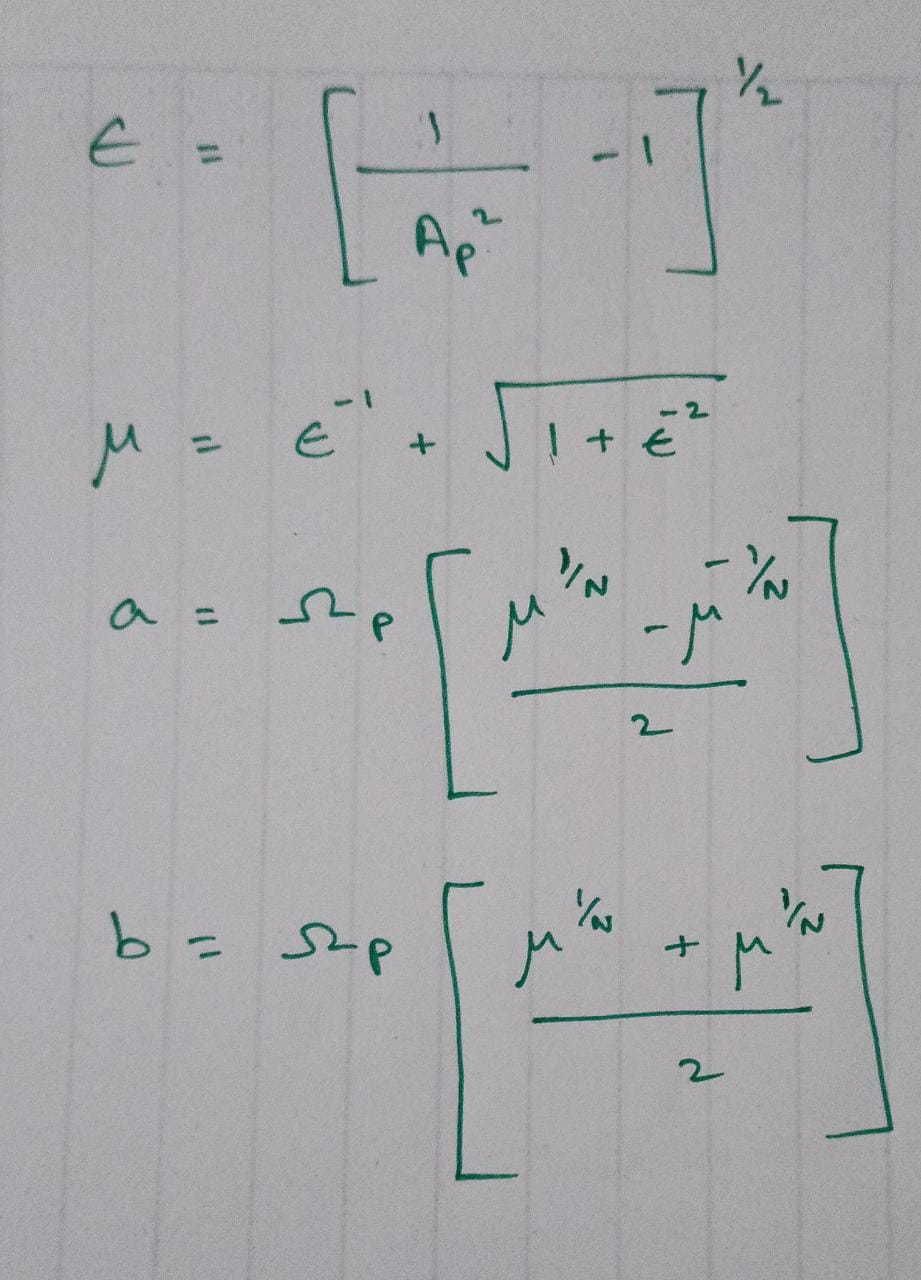 ϵ = [ 1 / Ap² - 1 ]^1/2
μ = ϵ^-1 + √(1 + ϵ^-2)
a = Ωp [ (μ^1/N - μ^-1/N) / 2 ]
b = Ωp [ (μ^1/N + μ^1/N) / 2 ]